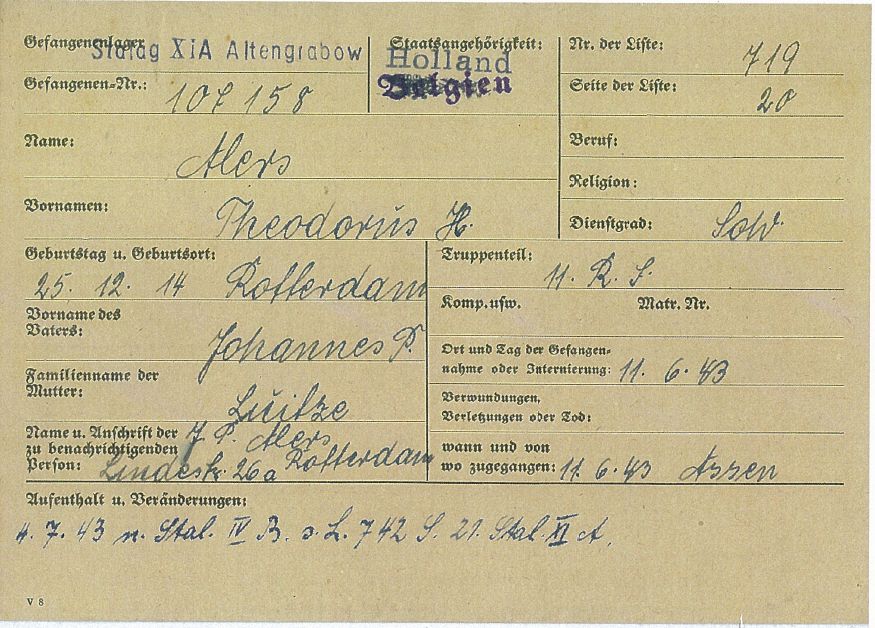 Gefangenenlager: Stalag XIA Altengrabow
Staatsangehörigkeit: Holland
Belgien
Nr. der Liste: 719
Gefangenen-Nr.: 107158
Seite der Liste: 20
Name: Alers
Beruf:
Religion:
Vornamen: Theodorus H.
Dienstgrad: Sold.
Geburtstag u. Geburtsort:
25. 12. 14 Rotterdam
Truppenteil:
11. R. I.
Vorname des
Vaters: Johannes P.
Komp. usw. Matr. Nr.
Ort und Tag der Gefangen-
nahme oder Internierung: 11. 6. 43
Familienname der
Mutter: Luitze
Verwundungen,
Verletzungen oder Tod:
Name u. Anschrift der J. P. Alers
zu benachrichtigenden
Person: Lindestr. 26a Rotterdam
wann und von
wo zugegangen: 11. 6. 43 Assen
Aufenthalt u. Veränderungen:
4. 7. 43 n. Stal. IV B. s. L. 742 S. 21. Stal. XI A.
V 8